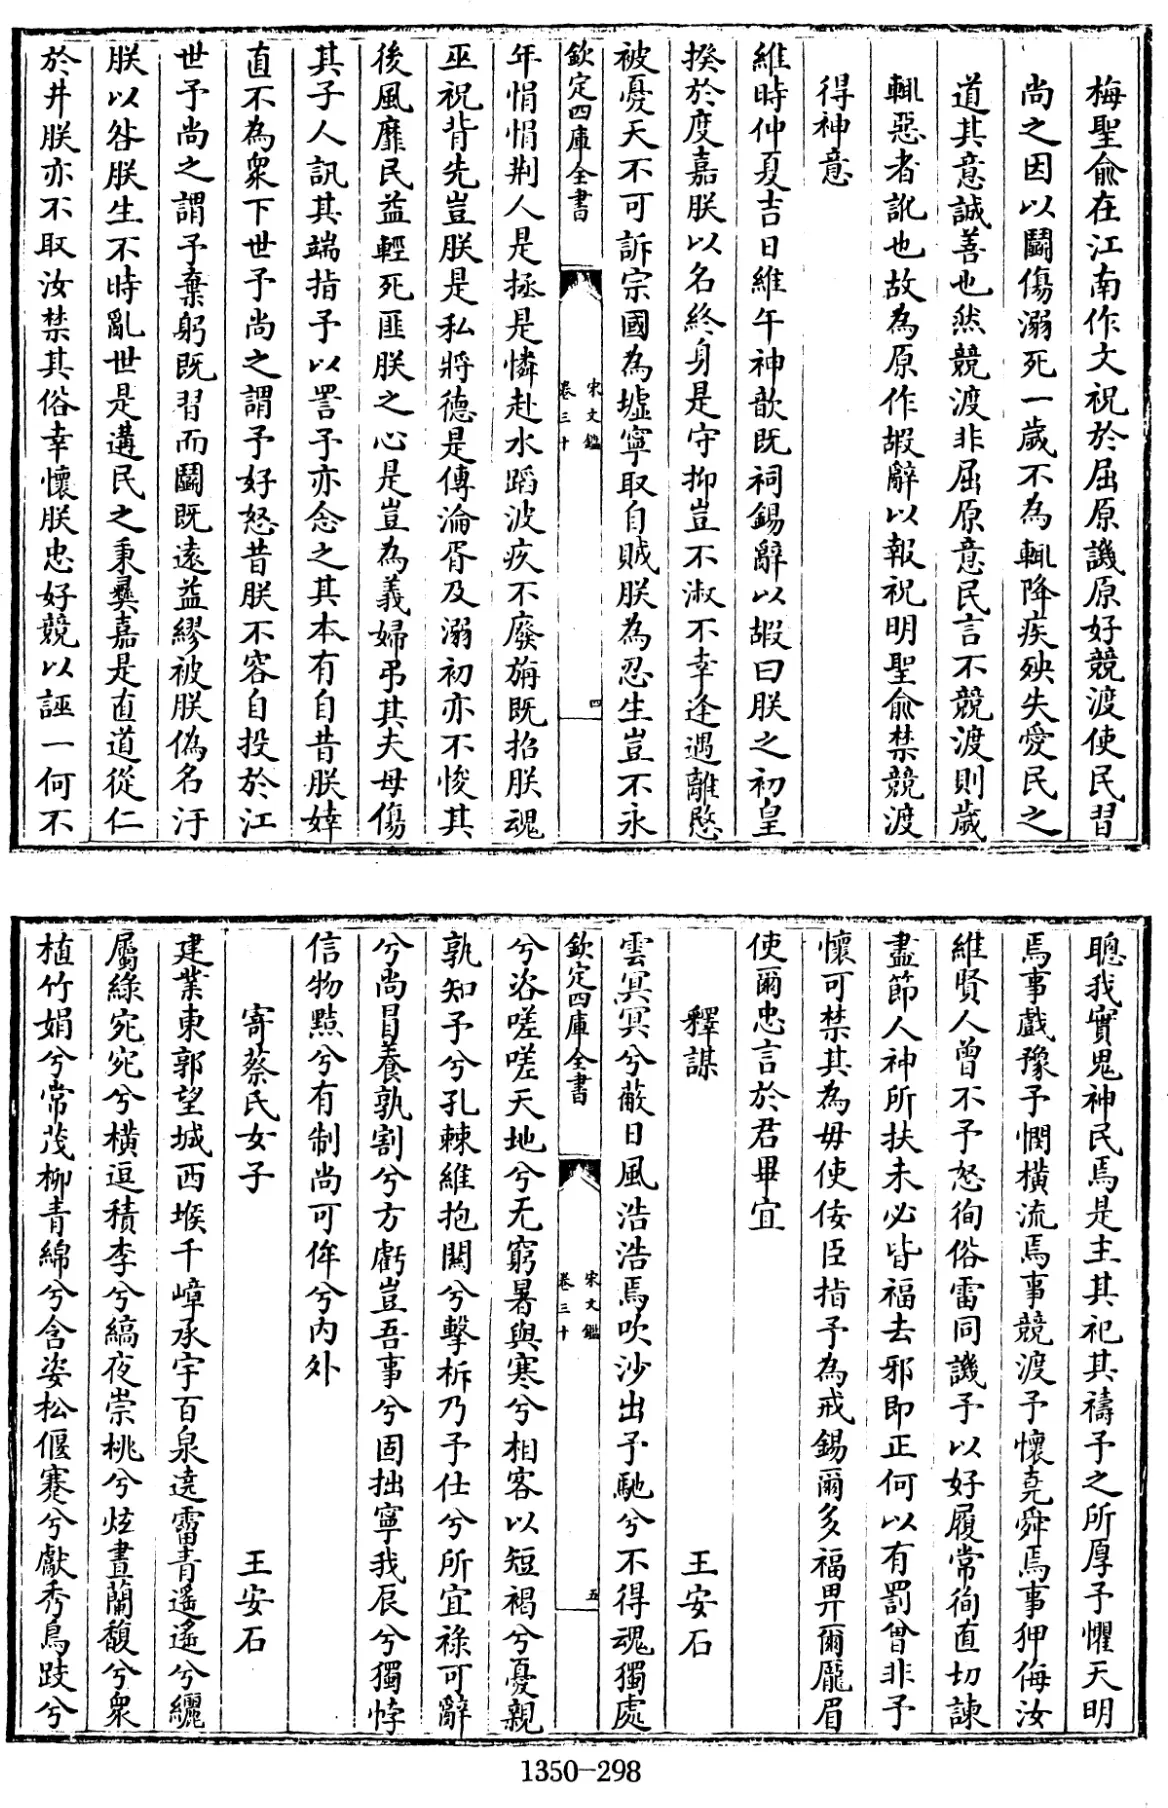 梅聖俞在江南作文祝於屈原譏原好競渡使民習
尚之因以鬭傷溺死一歲不為輒降疾殃失愛民之
道其意誠善也然競渡非屈原意民言不競渡則歲
輒惡者訛也故為原作嘏辭以報祝明聖俞禁競渡
得神意
維時仲夏吉日維午神歆既祠錫辭以嘏曰朕之初皇
揆於度嘉朕以名終身是守抑豈不淑不幸逢遇離愍
被憂天不可訴宗國為墟寧取自賊朕為忍生豈不永
欽定四庫全書
宋文鑑
卷三十
四
年悁悁荆人是拯是憐赴水蹈波疾不廢旃既招朕魂
巫祝背先豈朕是私將德是傳淪胥及溺初亦不悛其
後風靡民益輕死匪朕之心是豈為義婦弔其夫母傷
其子人訊其端指予以詈予亦念之其本有自昔朕婞
直不為衆下世予尚之謂予好怒昔朕不容自投於江
世予尚之謂予棄躬既習而鬭既遠益繆被朕偽名汙
朕以咎朕生不時亂世是遘民之秉彝嘉是直道從仁
於井朕亦不取汝禁其俗幸懷朕忠好競以誣一何不
聰我實鬼神民焉是主其祀其禱予之所厚予懼天明
焉事戲豫予憫橫流焉事競渡予懷堯舜焉事狎侮汝
維賢人曾不予怒徇俗雷同譏予以好履常徇直切諫
盡節人神所扶未必皆福去邪即正何以有罰曾非予
懷可禁其為毋使佞臣指予為戒錫爾多福畀爾龎眉
使爾忠言於君畢宜
釋謀 王安石
雲冥冥兮蔽日風浩浩焉吹沙出予馳兮不得魂獨處
欽定四庫全書
宋文鑑
卷三十
五
兮洛嗟嗟天地兮无窮暑與寒兮相客以短褐兮憂親
孰知予兮孔棘維抱關兮擊柝乃予仕兮所宜祿可辭
兮尚冒養孰割兮方虧豈吾事兮固拙寧我辰兮獨悖
信物點兮有制尚可侔兮內外
寄蔡氏女子 王安石
建業東郭望城西堠千嶂承宇百泉遶霤青遙遙兮纚
屬綠宛宛兮橫逗積李兮縞夜崇桃兮炫晝蘭馥兮衆
植竹娟兮常茂柳青綿兮含姿松偃蹇兮獻秀鳥跂兮
1350-298